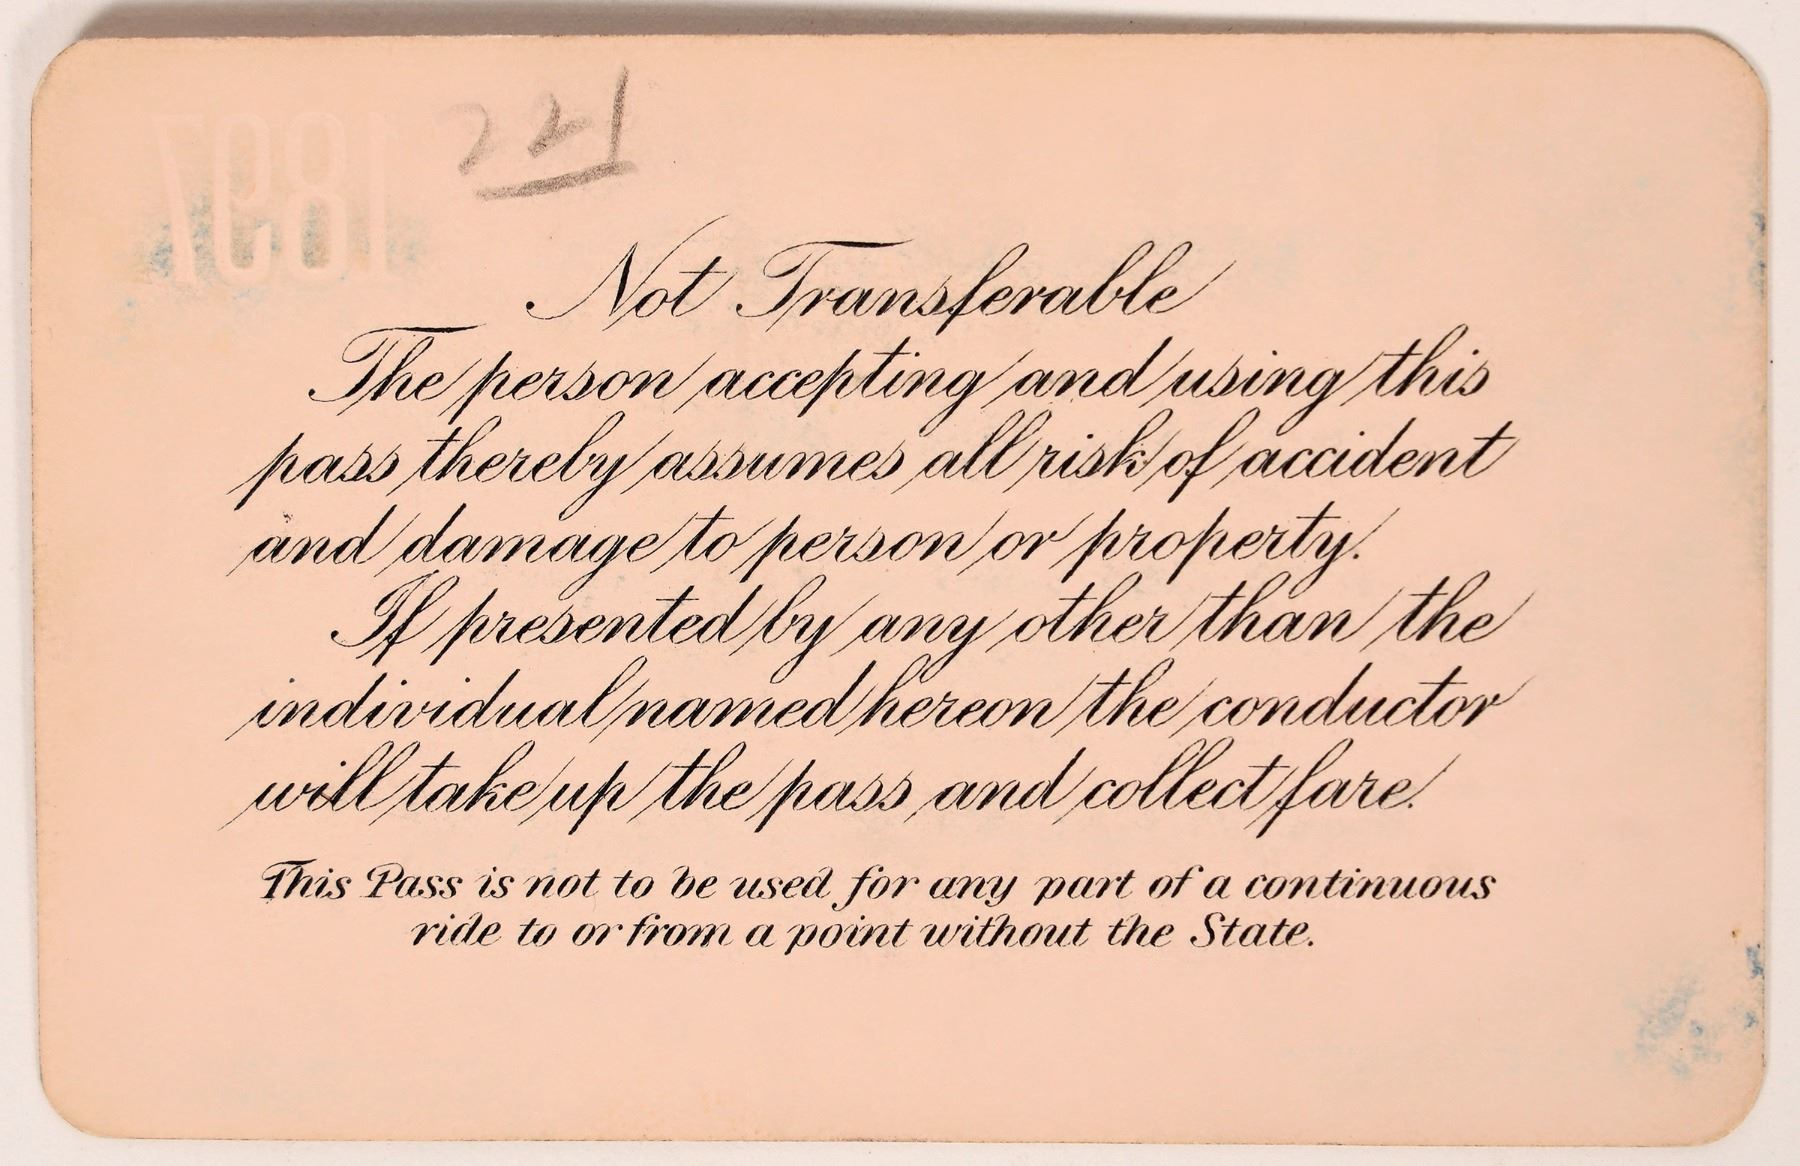 1897
221
Not Transferable
The person accepting and using this
pass thereby assumes all risk of accident
and damage to person or property.
If presented by any other than the
individual named hereon the conductor
will take up the pass and collect fare.
This Pass is not to be used for any part of a continuous
ride to or from a point without the State.